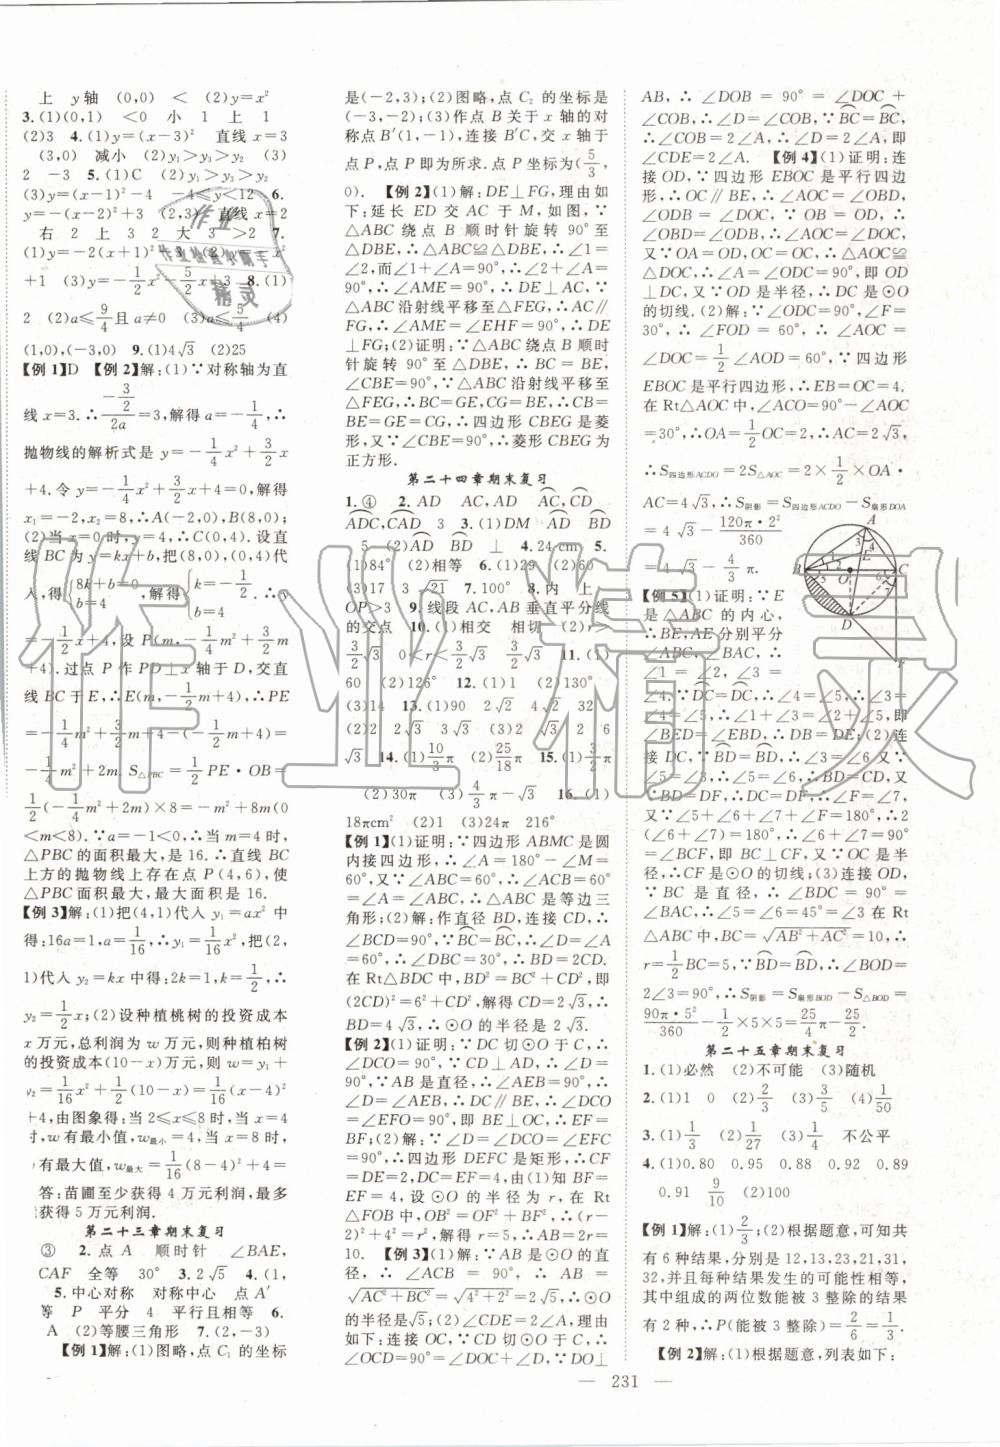 上 y轴 (0,0) < (2)y=x²
3.(1)(0,1) <0 小 1 上 1
(2)3 4.(1)y=(x−3)² 直线 x=3
(3,0) 减小 (2)y₁>y₃>y₂ (3)
2 −3 5.(1)C (2)y₃>y₁>y₂
(3)y=(x−1)²−4 −4≤y<12 6.
y=−(x−2)²+3 (2,3) 直线x=2
右 2 上 3 2 大 3 >2 7.
+1 (3)y=−1/2x²−5/2x+3 8.(1)
2 (2)a≤9/4且a≠0 (3)a≤5/4 (4)
(1,0),(−3,0) 9.(1)4√3 (2)25
【例1】D 【例2】解:(1)∵对称轴为直
线x=3.∴−(3/2)/(2a)=3,解得a=−1/4,∴
抛物线的解析式是y=−1/4x²+3/2x
+4.令−1/4x²+3/2x+4=0,解得
x₁=−2,x₂=8,∴A(−2,0),B(8,0);
(2)当x=0时,y=4,∴C(0,4).设直
线BC为y=kx+b,把(8,0)(0,4)代
入,得{8k+b=0 b=4,解得{k=−1/2 b=4,∴y=
−1/2x+4,设P(m,−1/4m²+3/2m
+4).过点P作PD⊥x轴于D,交直
线BC于E,∴E(m,−1/2m+4),∴PE
=−1/4m²+3/2m+4−(−1/2m+4)
=−1/4m²+2m,S△PBC=1/2PE·OB=
1/2(−1/4m²+2m)×8=−m²+8m(0
<m<8).∵−1<0,∴当m=4时,
△PBC的面积最大,是16.∴直线BC
上方的抛物线上存在点P(4,6),使
△PBC面积最大,最大面积是16.
【例3】解:(1)把(4,1)代入y₁=ax²中
得:16a=1,a=1/16,∴y₁=1/16x²,把(2,
1)代入y₂=kx中得:2k=1,k=1/2,∴
y₂=1/2x;(2)设种植桃树的投资成本
x万元,总利润为w万元,则种植柏树
的投资成本(10−x)万元,则w=y₁+
y₂=1/16x²+1/2(10−x)=1/16(x−4)²
+4,由图象得:当2≤x≤8时,当x=4
时,w有最小值,w最小=4,当x=8时,
w有最大值,w最大=1/16(8−4)²+4=5.
答:苗圃至少获得4万元利润,最多
获得5万元利润.
第二十三章期末复习
③ 2.点A 顺时针 ∠BAE,
CAF 全等 30° 3.2√5 4.(1,
5.中心对称 对称中心 点A′
等 P 平分 4 平行且相等 6.
A (2)等腰三角形 7.(2,−3)
【例1】解:(1)图略,点C₁的坐标
是(−2,3);(2)图略,点C₂的坐标是
(−3,−2);(3)作点B关于x轴的对
称点B′(1,−1),连接B′C,交x轴于
点P,点P即为所求.P坐标为(5/3,
0). 【例2】(1)解:DE⊥FG,理由如
下:延长ED交AC于M,如图,∵
△ABC绕点B顺时针旋转90°至
△DBE,∴△ABC≌△DBE,∴∠1=
∠2,而∠1+∠A=90°,∴∠2+∠A=
90°,∴∠AME=90°,∵△DBE,∵
△ABC沿射线平移至△FEG,∴AC∥
FG,∴∠AME=∠EHF=90°,∴DE
⊥FG;(2)证明:∵△ABC绕点B顺时
针旋转90°至△DBE,∴BC=BE,
∠CBE=90°,∵△ABC沿射线平移至
△FEG,∴BC=GE,CG=BE,∴BC=
BE=GE=CG,∴四边形CBEG为菱
形,又∵∠CBE=90°,∴菱形CBEG为
正方形.
第二十四章期末复习
1.④ 2.AD AC,AD AC,CD
ADC,CAD 3 3.(1)DM AD BD
5 (2)AD BD ⊥ 4.24 cm 5.
(1)84° (2)相等 6.(1)29 (2)60
(3)17 3 √21 7.100° 8.内 上
OP>3 9.线段AC,AB垂直平分线
的交点 10.(1)相交 相切 (2)r=
3/2√3 0<r<3/2√3 r>3/2√3 11.(1)
60 (2)126° 12.(1)1 (2)130°
(3)14 13.(1)90 2√2 4√2 32
(2)2 2√3 √3 3√3 (3)2 6
√3 14.(1)10/3π (2)25/18π 15.(1)
(2)30π (3)4/3π−√3 16.(1)
18πcm² (2)1 (3)24π 216°
【例1】(1)证明:∵四边形ABMC是圆
内接四边形,∴∠A=180°−∠M=
60°,又∵∠ABC=60°,∴∠ACB=
60°,∴∠A=∠ABC,∴△ABC是等边三
角形;(2)解:作直径BD,连接CD,∴
∠BCD=90°,∵BC=BC,∴∠D=∠A
=60°,∴∠DBC=30°,∴BD=2CD.
在Rt△BDC中,BD²=BC²+CD²,即
(2CD)²=6²+CD²,解得CD=2√3,
∴BD=4√3,∴⊙O的半径是2√3.
【例2】(1)证明:∵DC切⊙O于C,∴
∠DCO=90°,∵CD⊥AD,∴∠ADC
=90°,∵AB是直径,∴∠AEB=90°,
∴∠AEB=∠ADC,∴DC∥BE,∴∠DCO
=∠EFO=90°,即BE⊥OC,∴EF=
BF;(2)解:∵∠D=∠DCO=∠EFC
=90°,∴四边形DEFC是矩形,∴CF
=DE=2,EF=CD=4,由(1)知:EF
=BF=4,设⊙O的半径为r,在Rt
△FOB中,OB²=OF²+BF²,∴r²=(r−
2)²+4²,∴r=5,∴⊙O的直径AB=2r=
10. 【例3】(1)解:∵AB是⊙O的直
径,∴∠ACB=90°,∴AB=
√(AC²+BC²)=√(4²+2²)=2√5,∴⊙O
的半径是√5;(2)∠CDE=2∠A,理由
如下:连接OC,∵CD切⊙O于C,∴
∠OCD=90°=∠DOC+∠D,∵DO⊥
AB,∴∠DOB=90°=∠DOC+
∠COB,∴∠D=∠COB,∵BC=BC,∴
∠COB=2∠A,∴∠D=2∠A,即
∠CDE=2∠A. 【例4】(1)证明:连
接OD,∵四边形EBOC是平行四边
形,∴OC∥BE,∴∠AOC=∠OBD,
∠ODB=∠DOC,∵OB=OD,∴
∠OBD=∠ODB,∴∠DOC=∠AOC,
又∵OA=OD,OC=OC,∴△AOC≌
△DOC,∴∠ODC=∠OAC=90°,即OD
⊥DC,又∵OD是半径,∴DC是⊙O
的切线.(2)解:∵∠ODC=90°,∠F=
30°,∴∠FOD=60°,∴∠AOC=
∠DOC=1/2∠AOD=60°,∵四边形
EBOC是平行四边形,∴EB=OC=4.
在Rt△AOC中,∠ACO=90°−∠AOC
=30°,∴OA=1/2OC=1/2×4=2,
∴S四边形ACDO=2S△AOC=2×1/2×OA·
AC=4√3,∴S阴影=S四边形ACDO−S扇形DOA
=4√3−120π·2²/360
=4√3−4/3π.
【例5】(1)证明:∵E
是△ABC的内心,
∴BE,AE分别平分
∠ABC,∠BAC,∴
∠1=∠2,∠3=
∠4,∵DC=DC,∴∠4=∠5,∴∠3=
∠5,∴∠1+∠3=∠2+∠5,即
∠BED=∠EBD,∴DB=DE;(2)连
接DC,∵BD=BD,∴∠3=∠6,又∵
∠5=∠3,∴∠5=∠6,∴BD=DC,又
∵BD=DF,∴DC=DF,∴∠F=∠7,
又∵∠5+∠6+∠7+∠F=180°,∴
∠6+∠7=1/2×180°=90°,∴∠6+∠7
=∠BCF,即BC⊥CF,又∵OC是半
径,∴CF是⊙O的切线;(3)连接OD,
∵BC是直径,∴∠BAC=90°,∵∠3=
1/2∠BAC,∴∠5=∠4=45°,在Rt
△ABC中,BC=√(AB²+AC²)=10,∴
r=1/2BC=5,∵BD=BD,∴∠BOD=
2∠3=90°,∴S阴影=S扇形BOD−S△BOD=
90π·5²/360−1/2×5×5=25/4π−25/2.
第二十五章期末复习
1.(1)必然 (2)不可能 (3)随机
2.(1)1 0 (2)2/3 (3)3/5 (4)1/50
3.(1)1/3 (2)1/27 (3)1/4 不公平
4.(1)0.80 0.95 0.88 0.92 0.89
0.91 9/10 (2)100
【例1】解:(1)2/3;(2)根据题意,可知共
有6种结果,分别是12,13,23,21,31,
32,并且每种结果发生的可能性相等,
其中组成的两位数能被3整除的结果
有2种,∴P(能被3整除)=2/6=1/3.
【例2】解:(1)根据题意,列表如下:
A
B
C
D
E
F
O
— 231 —
作业精灵